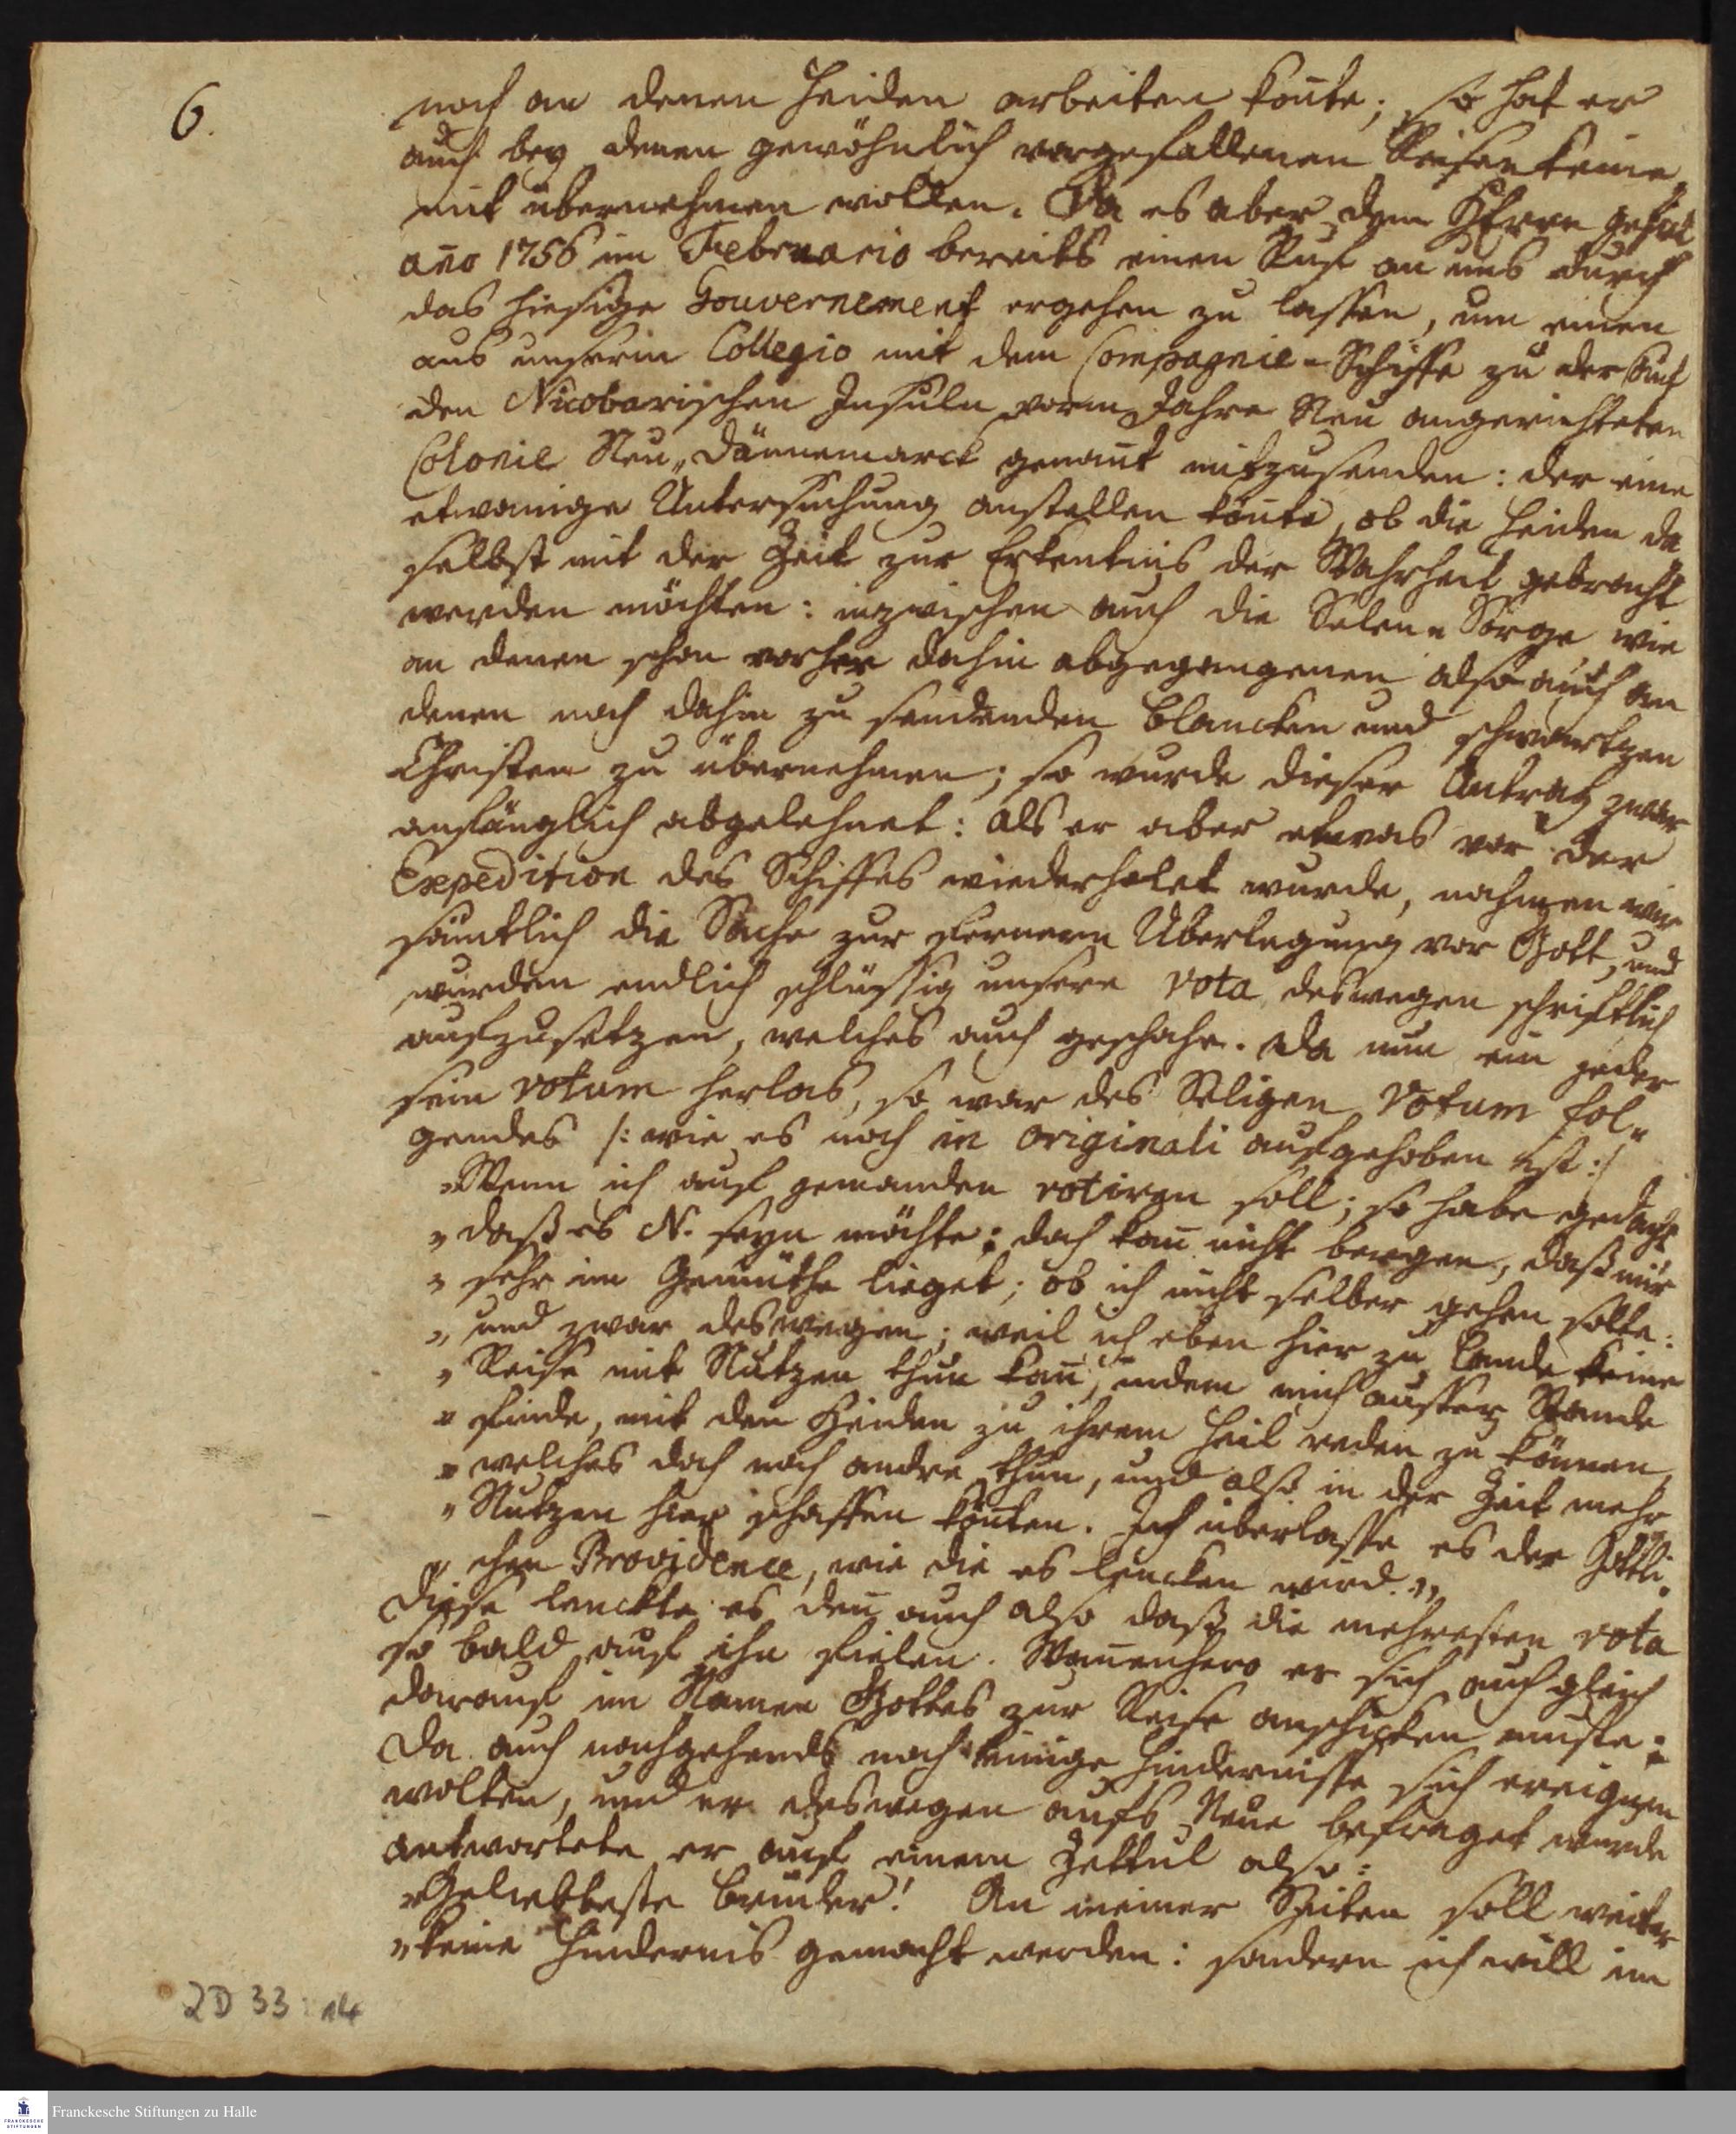 6.
noch an denen Heiden arbeiten kon̄te; so hat er
auch bey denen gewöhnlich vorgefallenen Reisen keine
mit übernehmen wollen. Da es aber dem HErrn gefiel
an̄o 1756 im Februario bereits einen Ruf an uns durch
das hiesige Gouvernement ergehen zu lassen, um einen
aus unserm Collegio mit dem Compagnie-Schiffe zu der auf
den Nicobarischen Insuln vorm Jahre Neu angerichteten
Colonie Neu„Dännemarck genan̄t mitzusenden: der eine
etwanige Untersuchung anstellen kön̄te, ob die Heiden da
selbst mit der Zeit zur Erkentnis der Wahrheit gebracht
werden möchten: inzwischen auch die Selen„Sorge wie
an denen schon vorher dahin abgegangenen also auch an
denen noch dahin zu sendenden Blancken und schwartzen
Christen zu übernehmen; so wurde dieser Antrag zwar
anfänglich abgelehnet: als er aber etwas vor der
Expedition des Schiffes wiederholet wurde, nahmen wir
sämtlich die Sache zur fernern Überlegung vor Gott, und
wurden endlich schlüssig unsere vota deswegen schriftlich
aufzusetzen, welches auch geschahe. Da nun ein jeder
sein votum herlas, so war des Seligen Votum fol„
gendes /: wie es noch in originali aufgehoben ist :/
„Wenn ich auf jemanden votiren soll; so habe gedacht
„daß es N. seyn möchte; doch kan̄ nicht bergen, daß mir
„sehr im Gemüthe lieget; ob ich nicht selber gehen solte:
„und zwar deswegen; weil ich eben hier zu Lande keine
„Reise mit Nutzen thun kan̄, indem mich ausser Stande
„finde, mit den Heiden zu ihrem Heil reden zu können,
„welches doch noch andre thun, und also in der Zeit mehr
„Nutzen hier schaffen kön̄ten. Ich überlasse es der Göttli„
„chen Providence, wie die es lencken wird.„
Diese lenckte es den̄ auch also daß die mehresten vota
so bald auf ihn fielen. Wan̄enhero er sich auch gleich
darauf im Namen Gottes zur Reise anschicken muste:
Da auch nachgehends noch einige Hindernisse sich ereignen
wolten, und er deswegen aufs Neue befraget wurde
antwortete er auf einem Zettul also:
„Geliebteste Brüder! An meiner Seiten soll weiter
„keine Hindernis gemacht werden: sondern ich will im
2D 33 : 14
Franckesche Stiftungen zu Halle
FRANCKESCHE
STIFTUNGEN